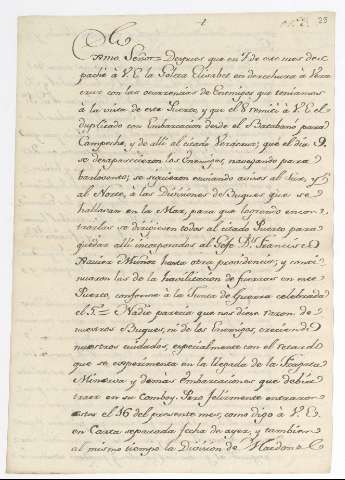 23
Exmo. Señor = Despues que en 7 de este mes des
pachè à V. E. la Goleta Elisabet en derechura à Vera
cruz con las ocurrencias de Enemigos que teniamos
à la vista de este Puerto, y que el 8 remiti à V. E. el
duplicado con Embarcacion desde el Batabanò para
Campeche, y de alli al citado Veracruz; que el dia 9.
se desaparecieron los Enemigos, navegando para
barlovento; se siguieron enviando avisos al Sur, y
al Norte, à las Divisiones de Buques que se
hallavan en la Mar, para que logrando encon
trarlos se dirigiesen todos al citado Puerto para
quedar alli incorporados al Gefe Dn. Francisco
Xavier Muñoz hasta otra providencia; y conti
nuaron las de la havilitacion de fuerzas en este
Puerto, conforme à la Junta de Guerra celebrada
el 7. = Nadie parecia que nos diese razon de
nuestros Buques, ni de los Enemigos, creciendo
nuestros cuidados, especialmente con el retardo
que se experimenta en la llegada de la Fragata
Minerva y demas Embarcaciones que debia
traer en su comboy. Pero felizmente entraron
estos el 16 del presente mes, como digo à V. E.
en Carta separada fecha de ayer, y tambien
al mismo tiempo la Division de Mardona